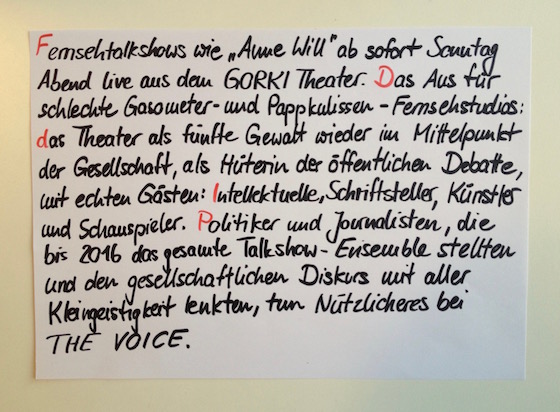 Fernsehtalkshows wie „Anne Will" ab sofort Sonntag
Abend live aus dem GORKI Theater. Das Aus für
schlechte Gasometer- und Pappkulissen - Fernsehstudios:
das Theater als fünfte Gewalt wieder im Mittelpunkt
der Gesellschaft, als Hüterin der öffentlichen Debatte,
mit echten Gästen: Intellektuelle, Schriftsteller, Künstler
und Schauspieler. Politiker und Journalisten, die
bis 2016 das gesamte Talkshow-Ensemble stellten
und den gesellschaftlichen Diskurs mit aller
Kleingeistigkeit lenkten, tun Nützlicheres bei
THE VOICE.